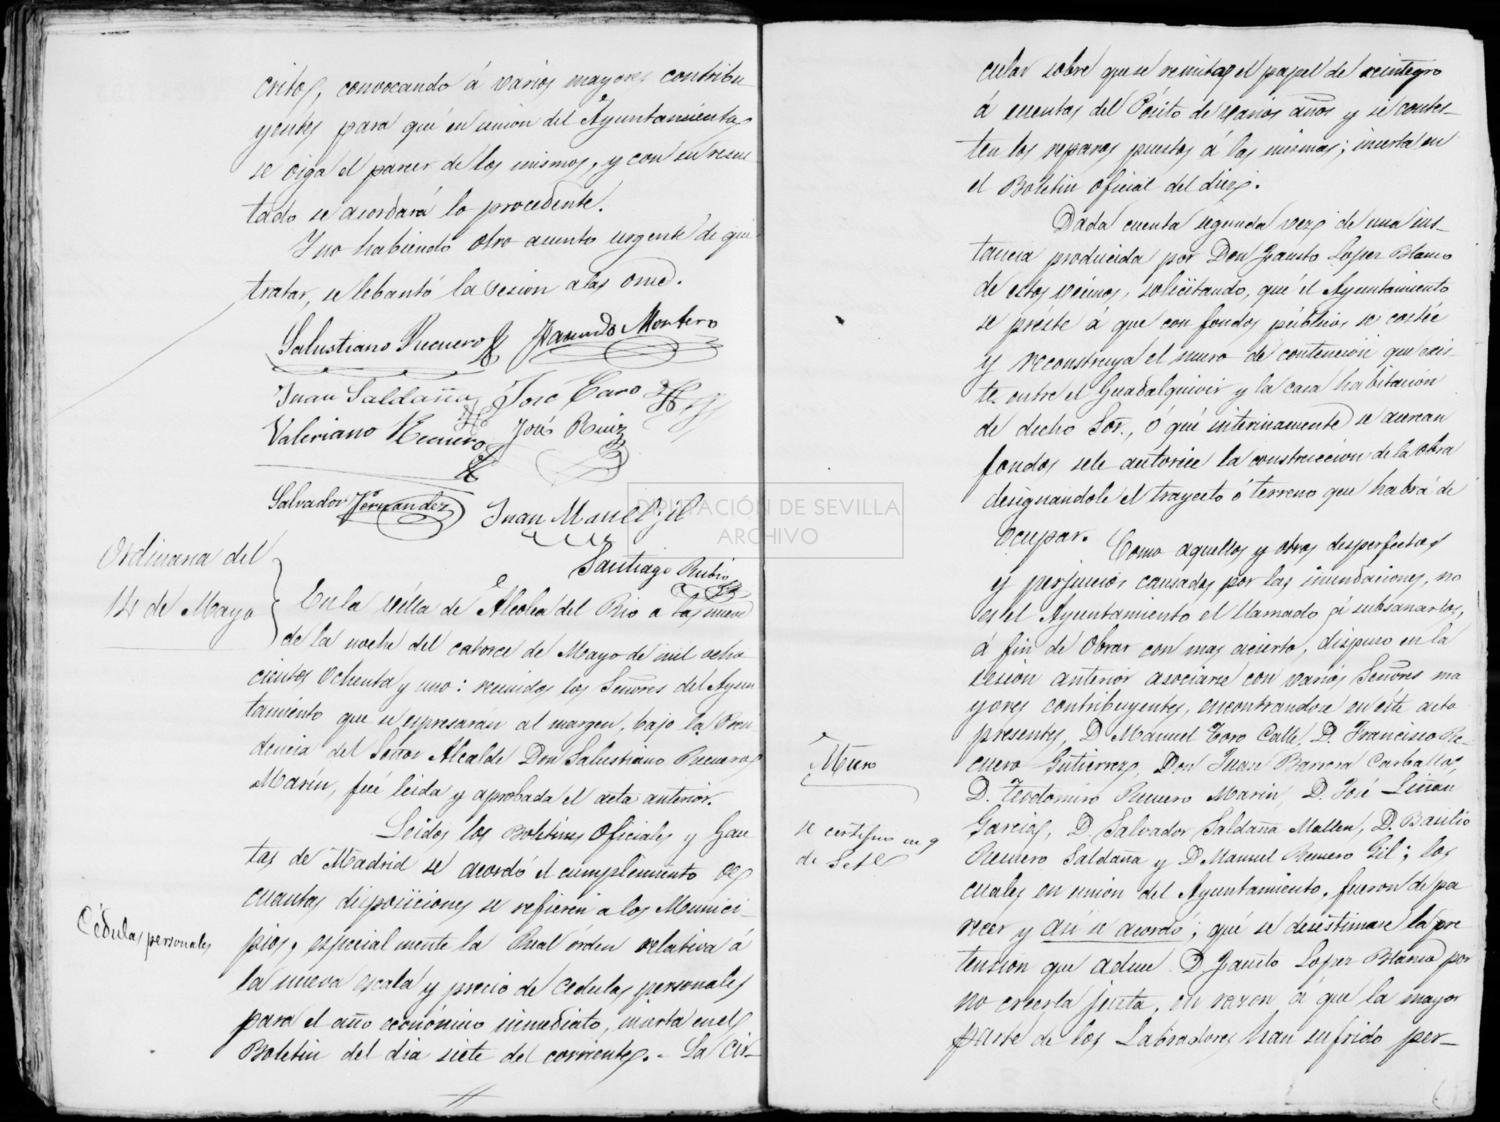 critos, convocando á varios mayores contribu
yentes para que en union del Ayuntamiento
se oiga el parecer de los mismos, y con su resul
tado se acordará lo procedente.
Y no habiendo otro asunto urgente de que
tratar, se lebantó la sesion a las once.
Salustiano Recuero Facundo Montero
Juan Saldaña José Caro
Valeriano Recuero José Ruiz
Salvador Fernandez Juan Man.l Gil
Santiago Rubio
Ordinaria del
14 de Mayo
En la villa de Alcolea del Rio a las nueve
de la noche del catorce de Mayo de mil ocho
cientos ochenta y uno: reunidos los Señores del Ayun
tamiento que se espresarán al margen, bajo la Presi
dencia del Señor Alcalde Don Salustiano Recuero
Marin, fué leida y aprobada el acta anterior.
Leidos los Boletines Oficiales y Gace
tas de Madrid se acordó el cumplimiento de
cuantas disposiciones se refieren a los Munici-
Cédulas personales
pios, especialmente la Real órden relativa á
la nueva escala y precio de cedulas personales
para el año económico inmediato, inserta en el
Boletin del dia siete del corriente. - La Cir-
cular sobre que se remitan el papel de reintegro
á cuentas del Pósito de varios años y se contes-
ten los reparos puestos á las mismas; inserta en
el Boletin oficial del diez.
Dada cuenta segunda vez de una ins-
tancia producida por Don Fausto Lopez Blanco
de estos vecinos, solicitando, que el Ayuntamiento
se preste á que con fondos públicos se costée
y reconstruya el muro de contencion que exis-
te entre el Guadalquivir y la casa habitacion
de dicho Sor., ó que interinamente se acercan
fondos se le autorice la construccion de la obra
designandole el trayecto ó terreno que habrá de
ocupar.
Como aquellos y otros desperfectos
y perjuicios causados por las inundaciones, no
es el Ayuntamiento el llamado á subsanarlos,
á fin de obrar con mas acierto, dispuso en la
sesion anterior asociarse con varios Señores ma
yores contribuyentes, encontrandose en éste acto
presentes, D. Manuel Toro Calle, D. Francisco Re-
Muro
cuero Gutierrez, Don Juan Barrera Carballo,
D. Teodomiro Recuero Marin, D. José Liñan
se certificó en 9
de Set.e
Garcia, D. Salvador Saldaña Mallen, D. Basilio
Recuero Saldaña y D. Manuel Recuero Gil; los
cuales en union del Ayuntamiento, fueron de pa
recer y así se acordó; que se desestimase la pre
tension que aduce D. Fausto Lopez Blanco por
no creerla justa, en razon á que la mayor
parte de los Labradores han sufrido per-
DIPUTACIÓN DE SEVILLA
ARCHIVO